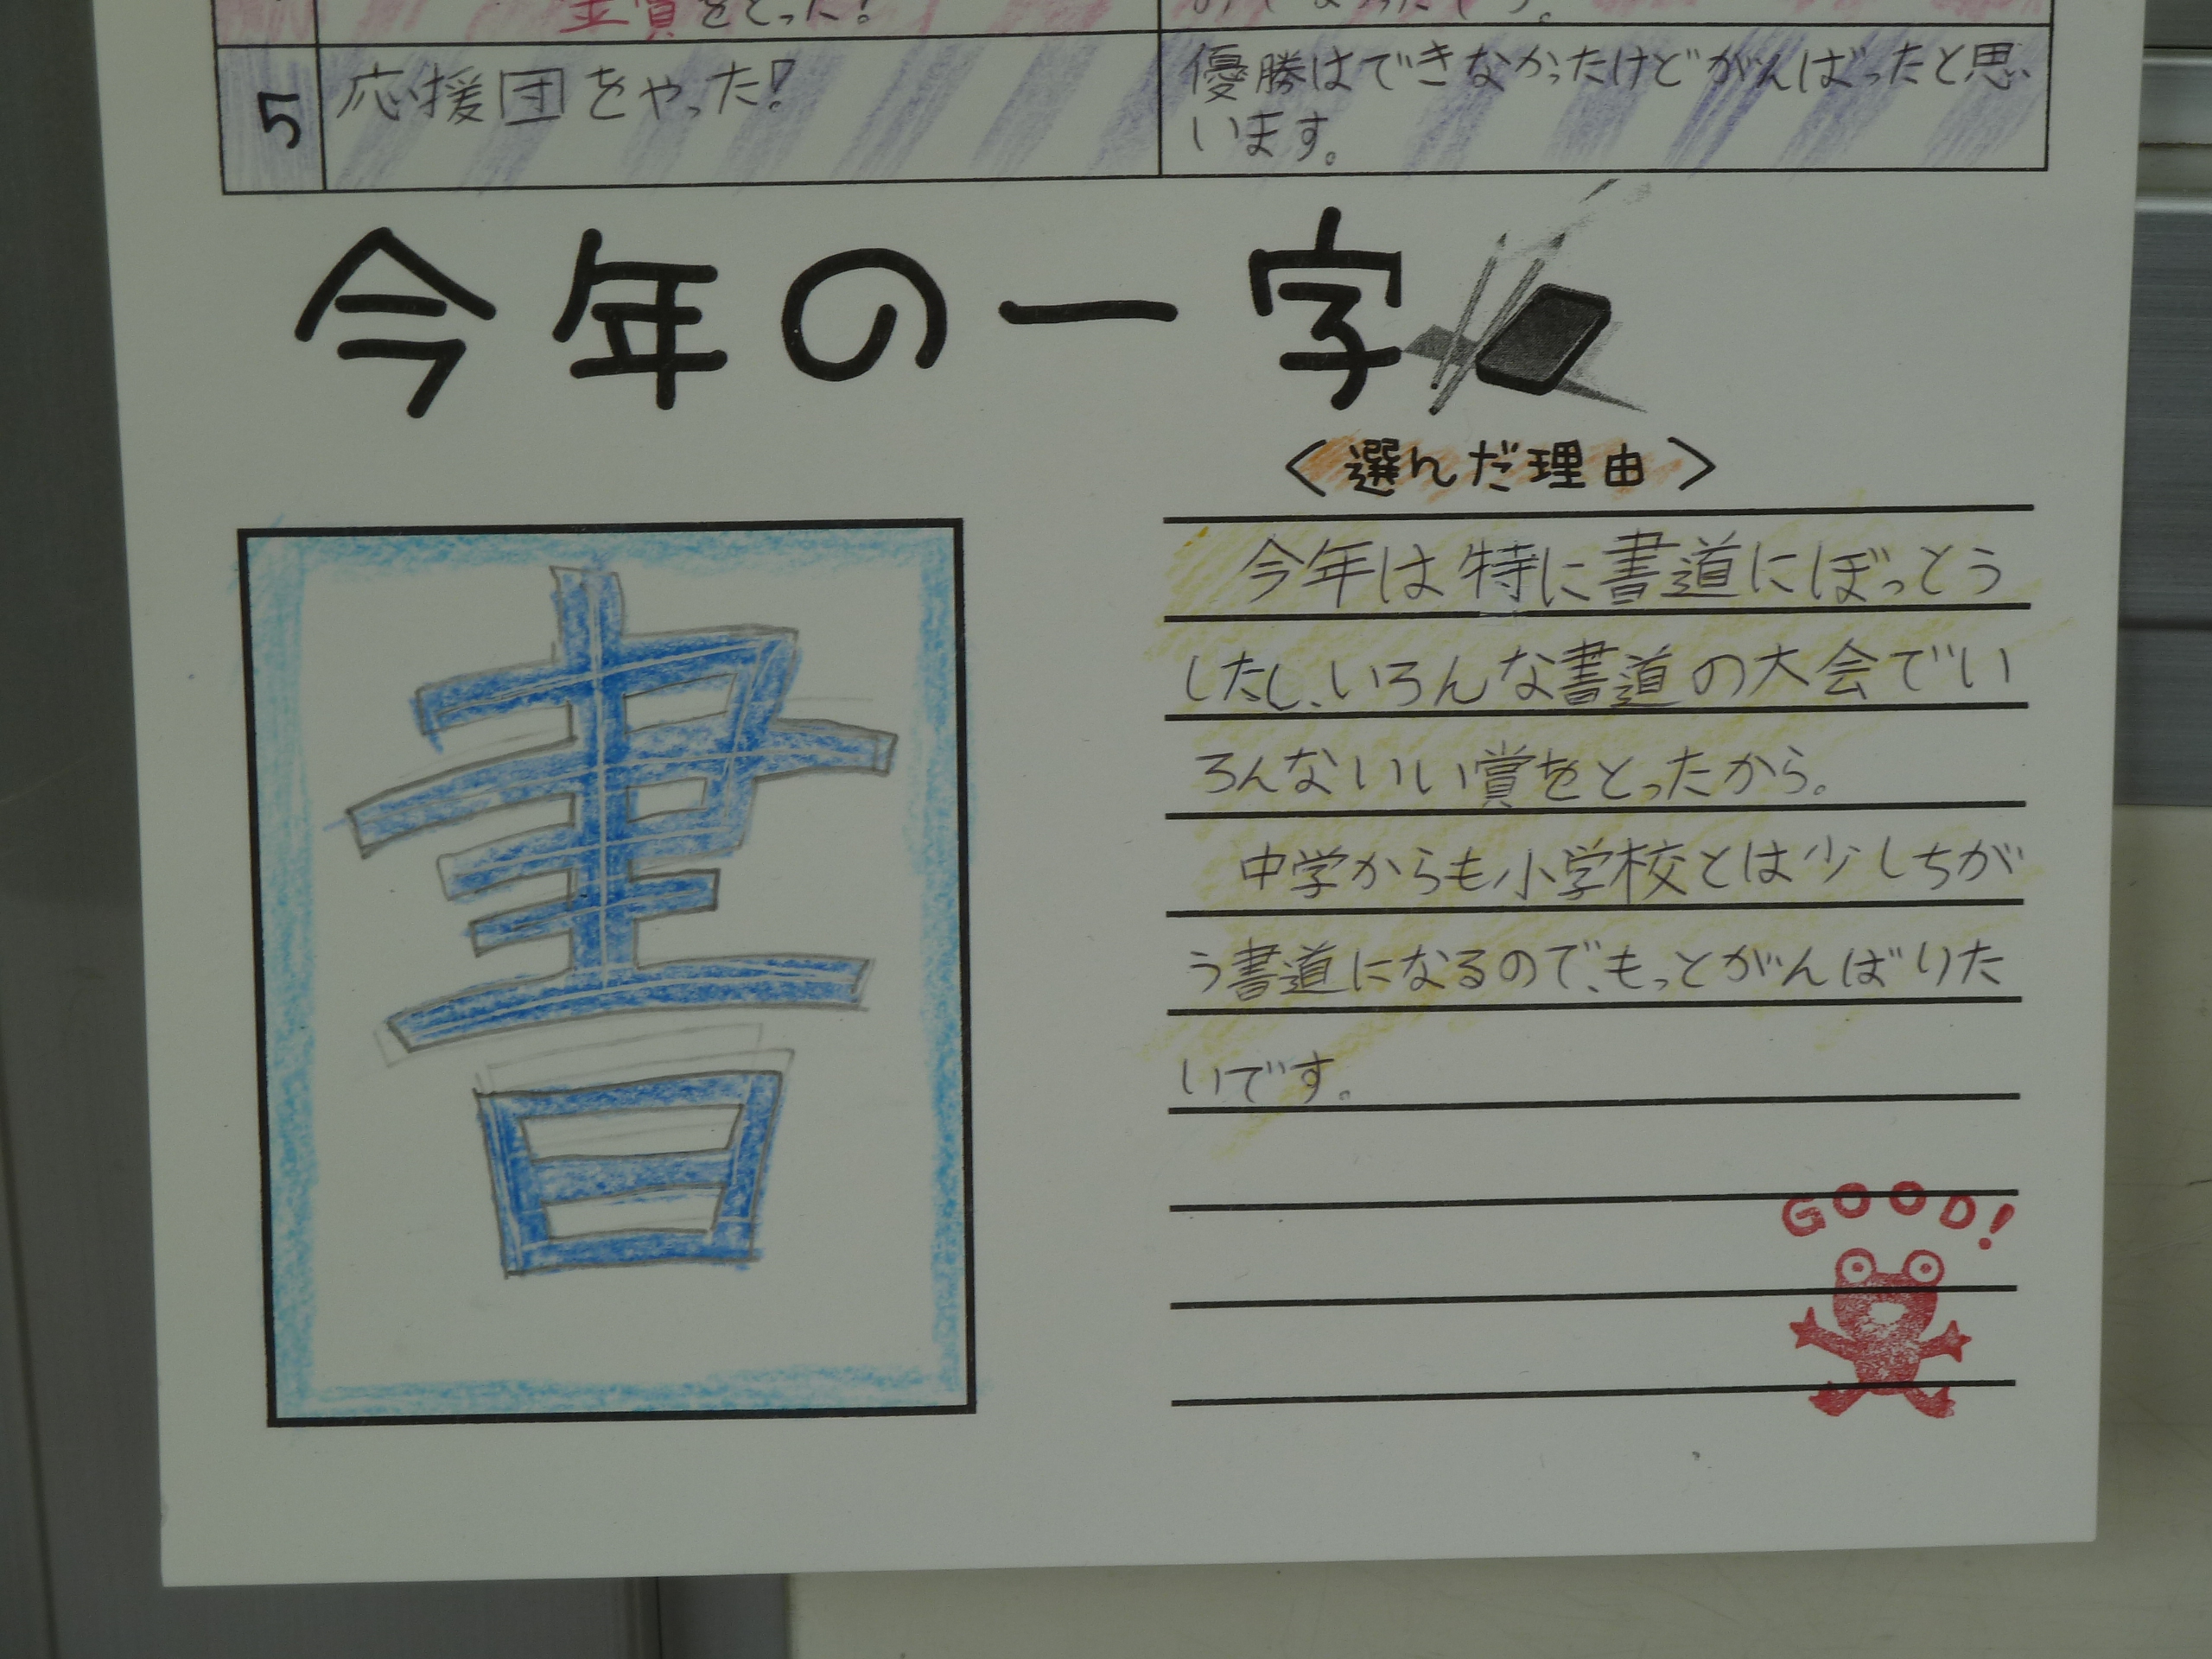 金賞をとった!
5
応援団をやった!
優勝はできなかったけどがんばったと思
います。
今年の一字
<選んだ理由>
書
今年は特に書道にぼっとう
したし、いろんな書道の大会でい
ろんないい賞をとったから。
中学からも小学校とは少しちが
う書道になるので、もっとがんばりた
いです。
GOOD!